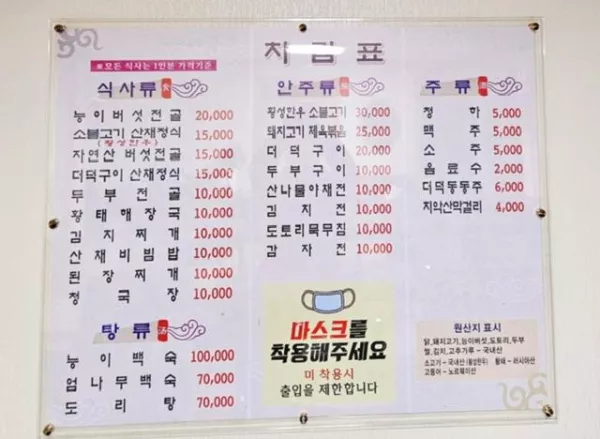 차림표
※모든 식사는 1인분 가격기준
식사류
능이버섯전골 20,000
소불고기 산채정식 15,000
(횡성한우)
자연산 버섯전골 15,000
더덕구이 산채정식 15,000
두부전골 10,000
황태해장국 10,000
김치찌개 10,000
산채비빔밥 10,000
된장찌개 10,000
청국장 10,000
탕류 湯
능이백숙 100,000
엄나무백숙 70,000
도리탕 70,000
안주류
횡성한우 소불고기 30,000
돼지고기 제육볶음 25,000
더덕구이 20,000
두부구이 10,000
산나물야채전 10,000
김치전 10,000
도토리묵무침 10,000
감자전 10,000
마스크를
착용해주세요
미 착용시
출입을 제한합니다
주류 酒
청하 5,000
맥주 5,000
소주 5,000
음료수 2,000
더덕동동주 6,000
치악산막걸리 4,000
원산지 표시
닭,돼지고기,능이버섯,도토리,두부
쌀,김치,고추가루 - 국내산
소고기 - 국내산 (횡성한우) 황태 - 러시아산
고등어 - 노르웨이산